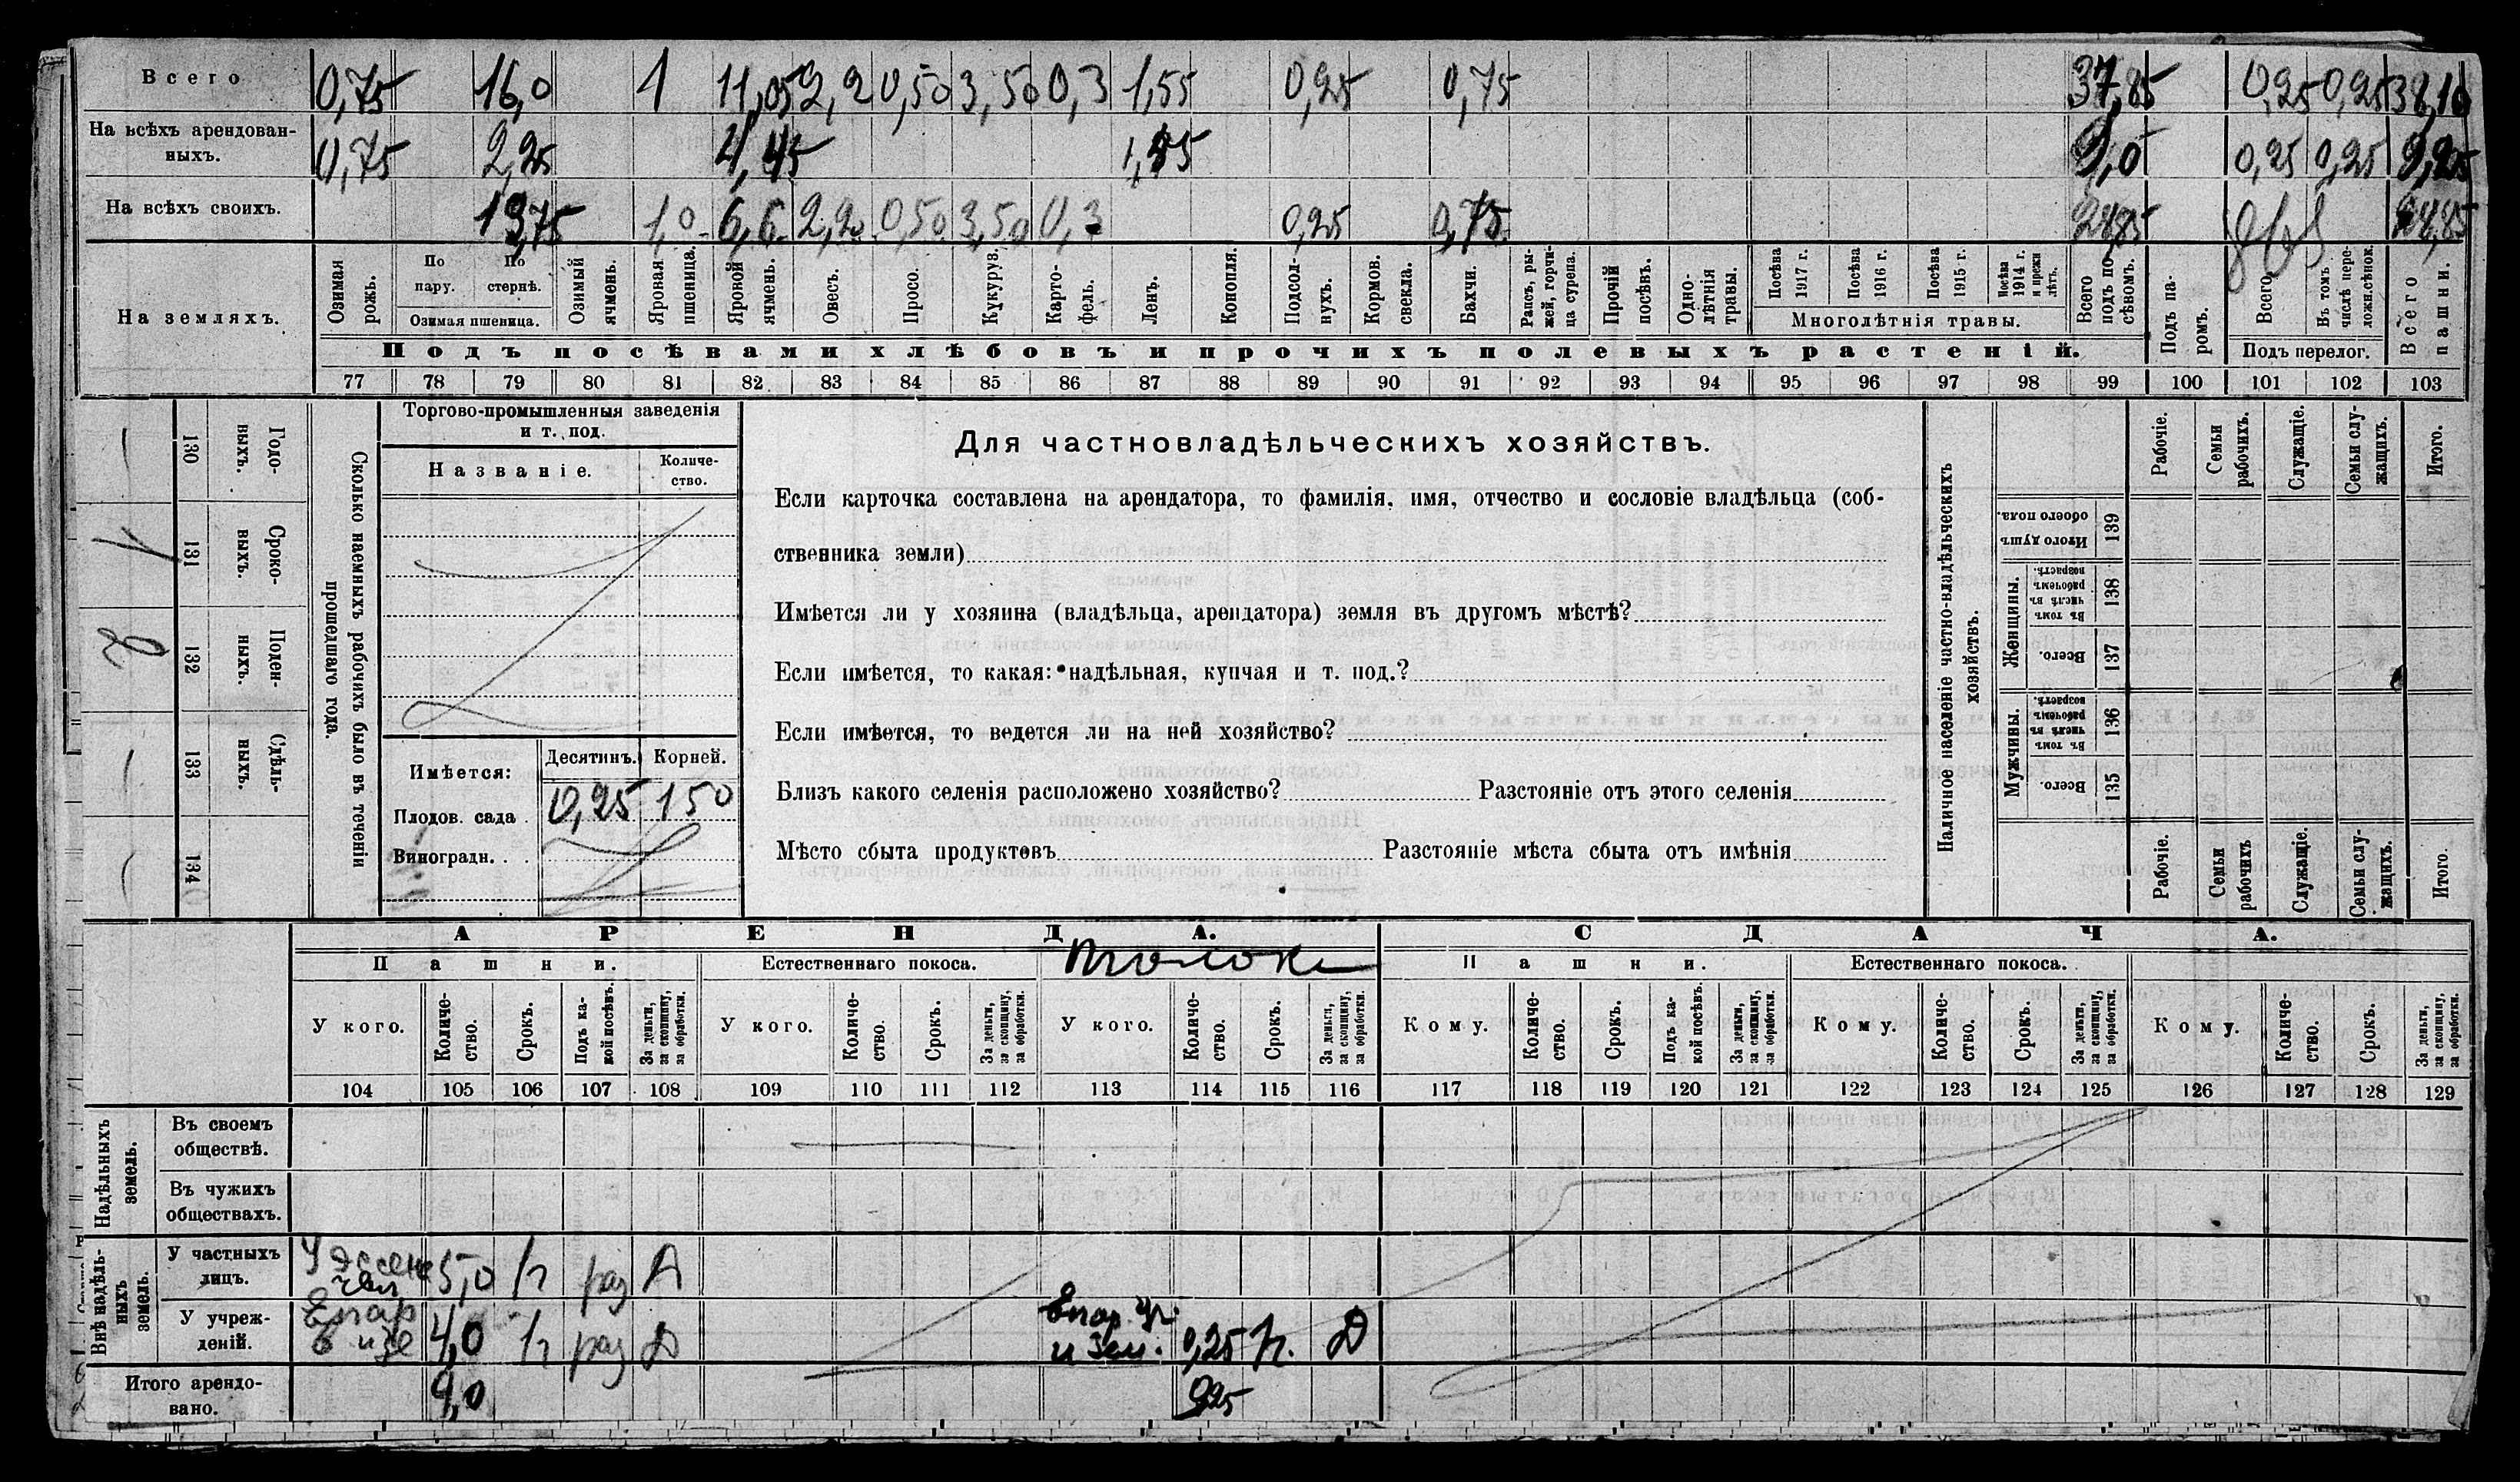 Всего 0,75 16,0 1 11,05 2,2 0,50 3,50 0,3 1,55 0,25 0,75 37,85 0,25 0,25 38,10
На всѣхъ арендован-
ныхъ. 0,75 2,25 4,45 9,0 0,25 0,25 9,25
На всѣхъ своихъ. 13,75 1,0 6,6 2,20 0,50 3,50 0,3 0,25 0,75 28,85 28,85
На земляхъ.
Озимая рожь.
По пару.
По стернѣ.
Озимая пшеница.
Озимый ячмень.
Яровая пшеница.
Яровой ячмень.
Овесъ.
Просо.
Кукуруз.
Карто-
фель.
Ленъ.
Конопля.
Подсол-
нухъ.
Кормов. свекла.
Бахчи.
Рапсъ, ры-
жей, горчи-
ца сурепа.
Прочій посѣвъ.
Одно-
лѣтнія травы.
Посѣва 1917 г.
Посѣва 1916 г.
Посѣва 1915 г.
Посѣва 1914 г. и прежн лѣтъ.
Многолѣтнія травы.
Всего подъ по-
сѣвомъ.
Подъ па-
ромъ.
Всего
Въ томъ числѣ пере-
ложн.сѣнок.
Подъ перелог.
Всего пашни.
Подъ посѣвами хлѣбовъ и прочихъ полевыхъ растеній.
77 78 79 80 81 82 83 84 85 86 87 88 89 90 91 92 93 94 95 96 97 98 99 100 101 102 103
Сколько наемныхъ рабочихъ было въ теченіи
прошедшаго года.
Годо-
выхъ. 130
Сроко-
выхъ. 131
Поден-
ныхъ. 132
Сдѣль-
ныхъ. 133
134
Торгово-промышленныя заведенія
и т. под.
Названіе.
Количе-
ство.
Имѣется: Десятинъ. Корней.
Плодов. сада 0,25 150
Виноградн.
Для частновладѣльческихъ хозяйствъ.
Если карточка составлена на арендатора, то фамилія, имя, отчество и сословіе владѣльца (соб-
ственника земли)
Имѣется ли у хозяина (владѣльца, арендатора) земля въ другомъ мѣстѣ?
Если имѣется, то какая: надѣльная, купчая и т. под.?
Если имѣется, то ведется ли на ней хозяйство?
Близъ какого селенія расположено хозяйство? Разстояніе отъ этого селенія
Мѣсто сбыта продуктовъ Разстояніе мѣста сбыта отъ имѣнія
Наличное населеніе частно-владѣльческихъ
хозяйствъ.
Рабочіе.
Семьи рабочихъ.
Служащіе.
Семьи слу-
жащихъ.
Итого.
Итого душъ обоего пола. 139
Женщины.
Въ томъ числѣ въ рабочемъ возрастѣ. 138
Всего. 137
Мужчины.
Въ томъ числѣ въ рабочемъ возрастѣ. 136
Всего. 135
Рабочіе.
Семьи рабочихъ
Служащіе.
Семьи слу-
жащихъ.
Итого.
АРЕНДА. СДАЧА.
Пашни. Естественнаго покоса. Толока Пашни. Естественнаго покоса.
У кого.
Количе-
ство.
Срокъ.
Подъ ка-
кой посѣвъ.
За деньги, за скопщину, за обработки.
У кого.
Количе-
ство.
Срокъ.
За деньги, за скопщину, за обработки.
У кого.
Количе-
ство.
Срокъ.
За деньги, за скопщину, за обработки.
Кому.
Количе-
ство.
Срокъ.
Подъ ка-
кой посѣвъ.
За деньги, за скопщину, за обработки.
Кому.
Количе-
ство.
Срокъ.
За деньги, за скопщину, за обработки.
Кому.
Количе-
ство.
Срокъ.
За деньги, за скопщину, за обработки.
104 105 106 107 108 109 110 111 112 113 114 115 116 117 118 119 120 121 122 123 124 125 126 127 128 129
Надѣльныхъ земель.
Въ своемъ
обществѣ.
Въ чужихъ
обществахъ.
Внѣ надѣль-
ныхъ земель.
У частныхъ
лицъ. 5,0 1г раз Д
У учреж-
деній. Епар 4,0 1г раз Д Епар. 0,25 1г. Д
Итого арендо-
вано. 9,0 0,25